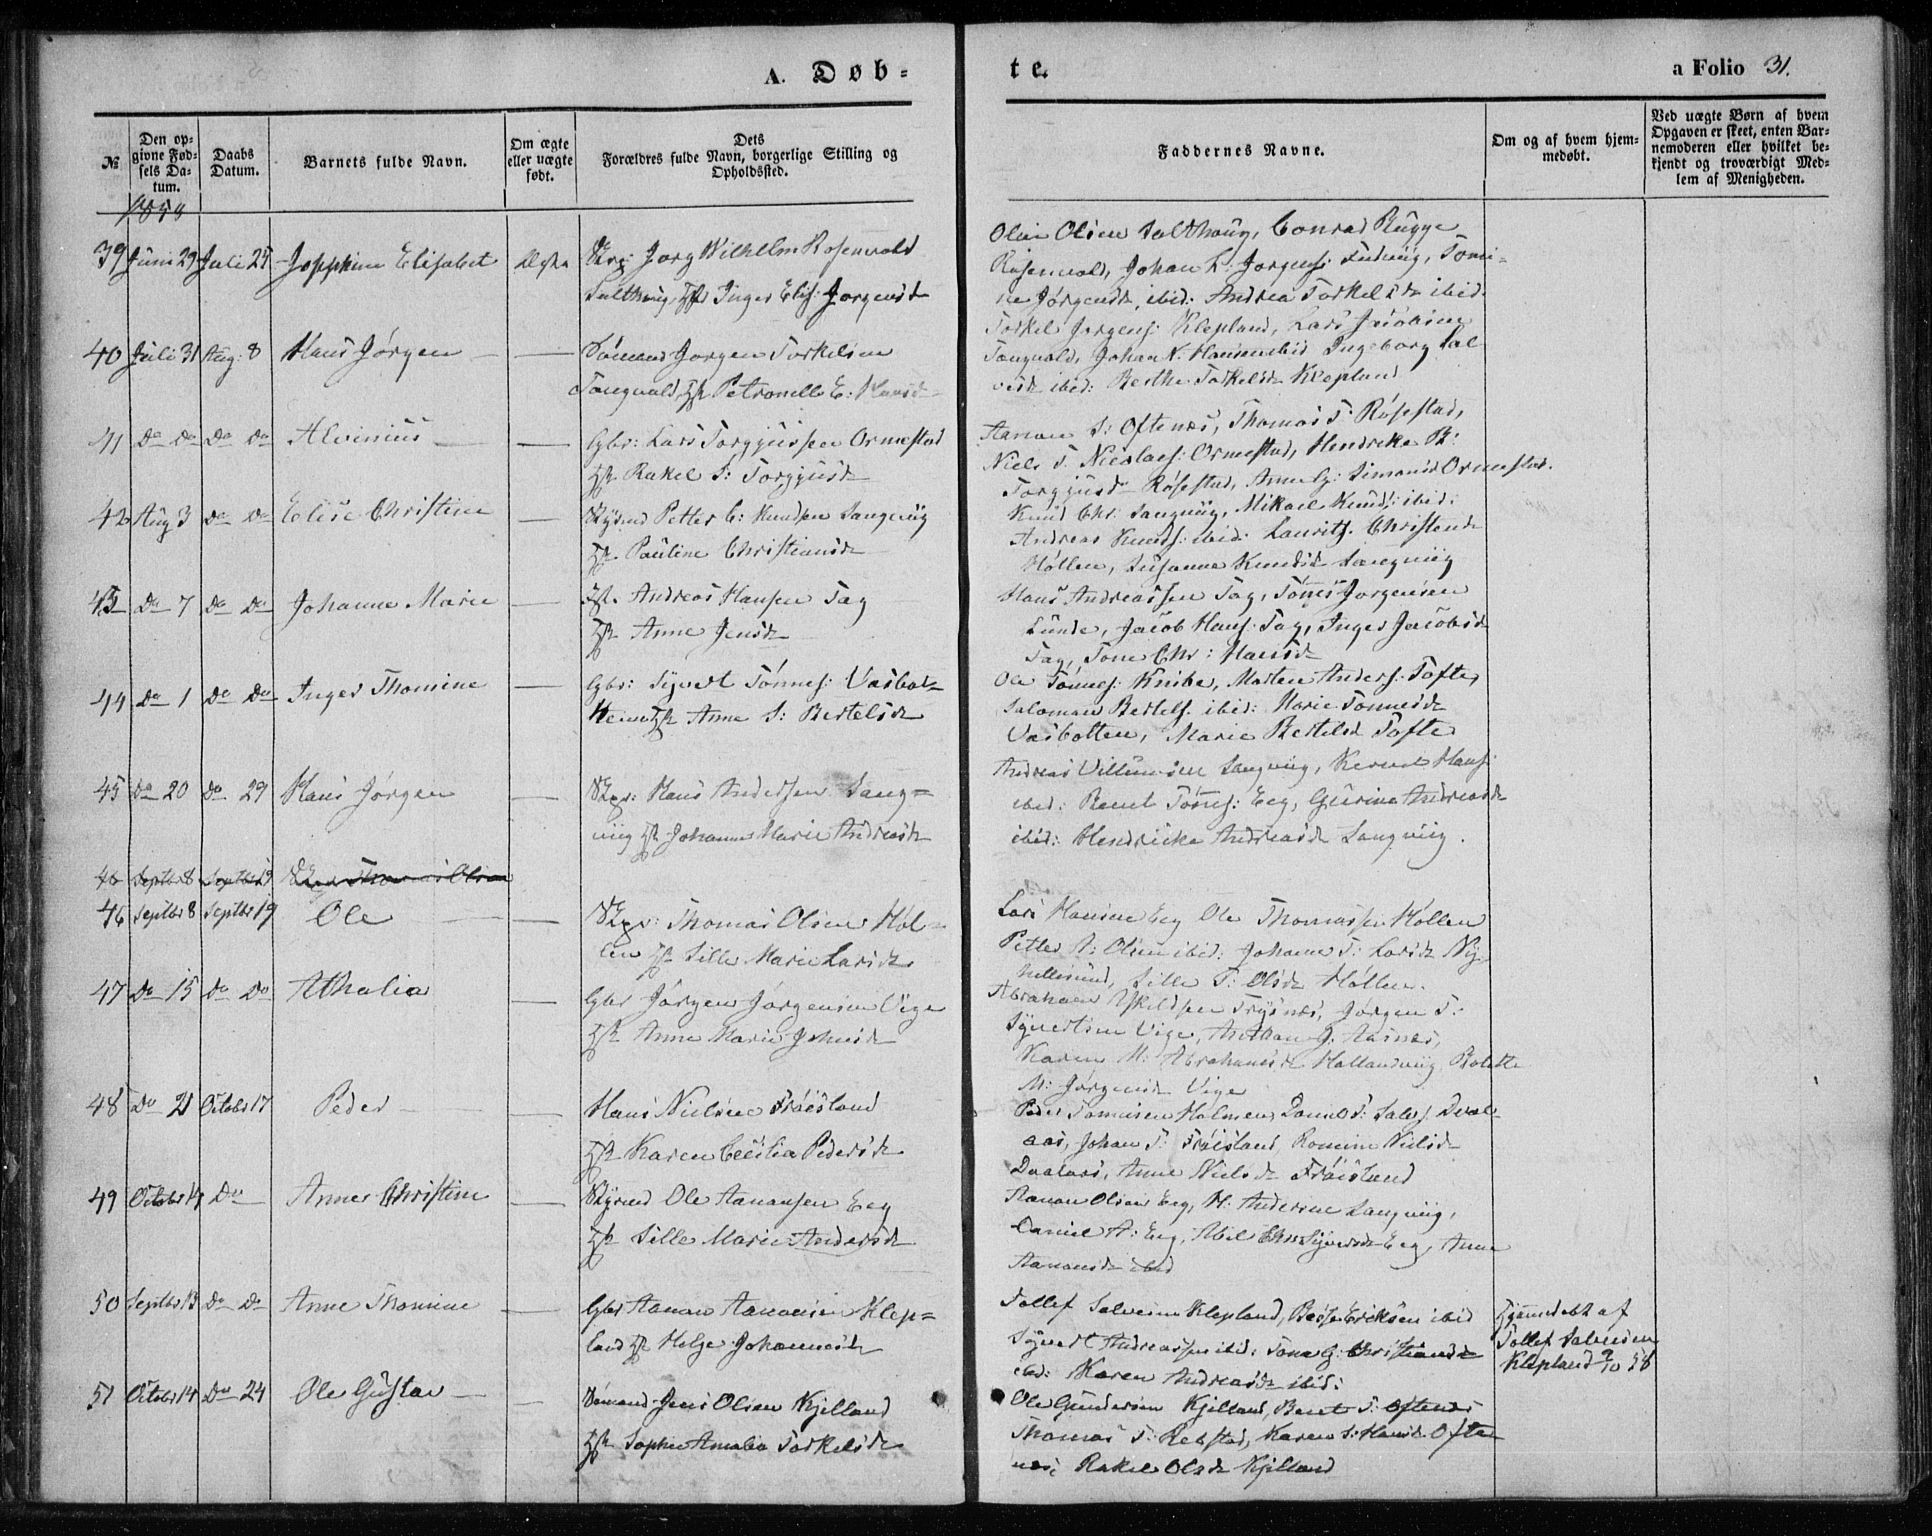 A. Døb-
te.
a Folio 31.
№
Den op-
givne Fød-
sels Da-
tum.
Daabs
Datum.
Barnets fulde Navn.
Om ægte
eller uægte
født.
Dets
Forældres fulde Navn, borgerlige Stilling og
Opholdssted.
Faddernes Navne.
Om og af hvem hjem-
medøbt.
Ved uægte Børn af hvem
Opgaven er skeet, enten Bar-
nemoderen eller hvilket be-
kjendt og troværdigt Med-
lem af Menigheden.
1858
39 Juni 29 Juli 25 Josephine Elisabet Ægte Jørg Wilhelm Rosenvold
Salthoug, Inger Elis: Jørgensd
Olsen Salthoug, Conrad Rugge
Rosenvold, Johan L: Jørgens: Ludvig, Tomi-
ne Jørgensd, ibid: Andrea Torkelsd ibid:
40 Juli 31 Aug: 8 Hans Jørgen — — Sømand Jørgen Torkelsen
Tangvald, Petronelle E: Hansd
Torkel Jørgens: Klepland, Lars
Tangvald, Johan N. Hansen ibid Ingeborg Sal-
vesd ibid: Berthe Torkelsd Klepland
41 Do Do Do Do Alvinius — — Gbr: Lars Torgjussen Ormestad
Rakel S: Torgjusd
Aanon S: Oftenæs, Thomas T: Røsestad,
Niels T. Nicolais: Ormestad, Hendrike B:
Torgjusd Røsestad, Anne G: Simonsd Ormestad.
42 Aug 3 Do Do Elise Christine — Petter C: Knudsen Langeviig
Pauline Christiansd
Knud Chr: Langviig, Mikael Knuds: ibid:
Andreas Knuds: ibid: Laurits Christensd
Høllen, Susanne Knudsd Langviig
43 Do 7 Do Do Johanne Marie — Andreas Hansen Tag
Anne Jensd
Hans Andreassen Tag, Tønnes Jørgensen
Lunde, Jacob Hans: Tag, Inger Jacobsd
Tag, Tone Chr: Hansd
44 Do 1 Do Do Inger Thomine — Gbr: Syvert Tønnes: Vasbot-
ten Anne S: Bertelsd
Ole Tønnes: Knibe, Morten Anders: Tofte,
Salomon Bertels: ibid: Marie Tønnesd
Vasbotten, Marie Bertelsd Tofte
45 Do 20 Do 29 Hans Jørgen — Hans Andersen Lang-
viig Johanne Marie Andreasd
Andreas Villumsen Langviig, Hans:
ibid: Berent Tønnes: Eeg, Gurine Andreasd
ibid: Hendricke Andreasd Langviig.
46 Septbr 8 Septbr 19 Thomas Olsen
46 Septbr 8 Septbr 19 Ole — — Thomas Olsen Høl-
len Sille Marie Larsd
Lars Hansen Eeg Ole Thomassen Høllen
Petter A: Olsen ibid: Johanne T: Larsd Ny-
hellesund, Sille T: Olsd Høllen.
47 Do 15 Do Do Athalia — Gbr Jørgen Jørgensen Vige
Anne Marie Johnsd
Abraham Eskildsen Trysnæs, Jørgen T:
Syvertsen Vige, G. Aasnes,
Karen M: Abrahamsd Hallandviig Bolette
M: Jørgensd Vige
48 Do 21 Octobr 17 Peder — — Hans Nielsen Frøisland
Karen Cecilia Pedersd
Peder Tomasen Holmen, Daniel T: Salves: Dval-
aas, Johan T: Frøisland, Romine Nielsd
Dvalaas, Anne Nielsd Frøisland
49 Octobr 14 Do Anne Christine — Ole Aanansen Eeg
Sille Marie Andersd
Aanon Olsen Eeg, H: Andersen Langviig,
Daniel A: Eeg, Abel Chr: Syvertsd Eeg, Anne
Aanonsd ibid
50 Septbr 13 Do Do Anne Thomine — Gbr Aanon Aanonsen Klep-
land Helge Johannesd
Tollef Salvesen Klepland, Eriksen ibid
Syvert Andreassen ibid: Tone G: Christiansd
ibid: Karen Andreasd ibid:
Hjemmedøbt af
Tollef Salvesen
Klepland 9/10 58
51 Octobr 14 Do 24 Ole Gustav — — Sømand Jens Olsen Kjelland
Sophie Amalia Torkelsd
Ole Gundersen Kjelland, Berent T: Oftenæs
Thomas T: Rebstad, Karen S: Hansd Ofte-
næs, Rakel Olsd Kjelland